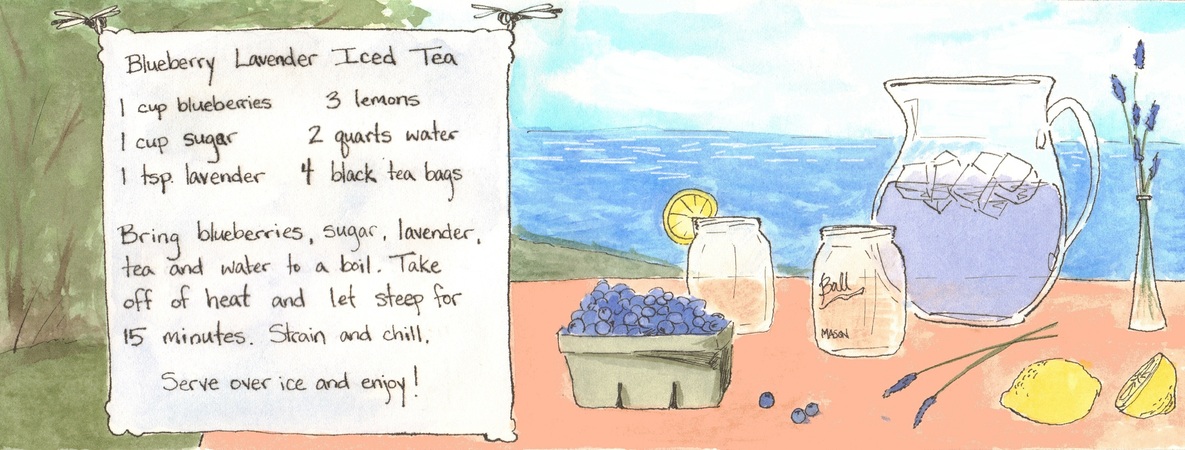 Blueberry Lavender Iced Tea
1 cup blueberries 3 lemons
1 cup sugar 2 quarts water
1 tsp. lavender 4 black tea bags
Bring blueberries, sugar, lavender,
tea and water to a boil. Take
off of heat and let steep for
15 minutes. Strain and chill.
Serve over ice and enjoy!
Ball
MASON